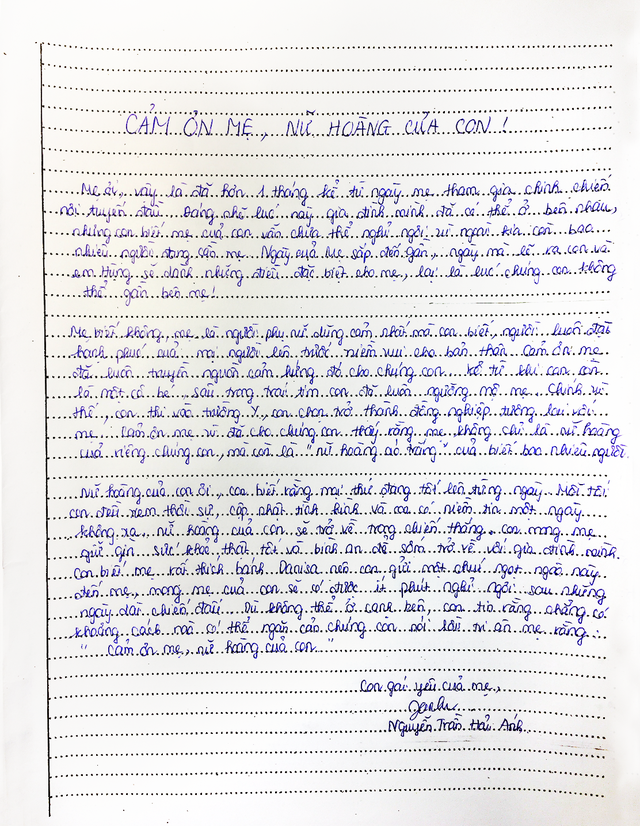 CẢM ƠN MẸ, NỮ HOÀNG CỦA CON!
Mẹ ơi, vậy là đã hơn 1 tháng kể từ ngày mẹ tham gia chinh chiến
nơi tuyến đầu. Đáng nhẽ lúc này gia đình mình đã có thể ở bên nhau,
nhưng con biết mẹ của con vẫn chưa thể nghỉ ngơi vì ngoài kia còn bao
nhiêu người đang cần mẹ. Ngày của Mẹ sắp đến gần, ngày mà lẽ ra con và
em Hùng sẽ dành những điều đặc biệt cho mẹ, lại là lúc chúng con không
thể gần bên mẹ!
Mẹ biết không, mẹ là người phụ nữ dũng cảm nhất mà con biết, người luôn đặt
hạnh phúc của mọi người lên trước niềm vui cho bản thân. Cảm ơn mẹ
đã luôn truyền nguồn cảm hứng đó cho chúng con. Kể từ khi con còn
là một cô bé, sâu trong trái tim con đã luôn ngưỡng mộ mẹ. Chính vì
thế, con thi vào trường Y, con chọn trở thành đồng nghiệp tương lai với
mẹ. Cảm ơn mẹ vì đã cho chúng con thấy rằng, mẹ không chỉ là nữ hoàng
của riêng chúng con, mà còn là "nữ hoàng áo trắng" của biết bao nhiêu người.
Nữ hoàng của con ơi, con biết rằng mọi thứ đang tốt lên từng ngày. Mỗi tối
con đều xem thời sự, cập nhật tình hình và con có niềm tin một ngày
không xa, nữ hoàng của con sẽ trở về trong chiến thắng. Con mong mẹ
giữ gìn sức khoẻ thật tốt và bình an để sớm trở về với gia đình mình.
Con biết mẹ rất thích bánh Danisa nên con gửi một chút ngọt ngào này
đến mẹ, mong mẹ của con sẽ có được ít phút nghỉ ngơi sau những
ngày dài chiến đấu. Dù không thể ở cạnh bên, con tin rằng chẳng có
khoảng cách nào có thể ngăn cản chúng con nói lời tri ân mẹ rằng:
"Cảm ơn mẹ, nữ hoàng của con"
Con gái yêu của mẹ,
Nguyễn Trần Hải Anh